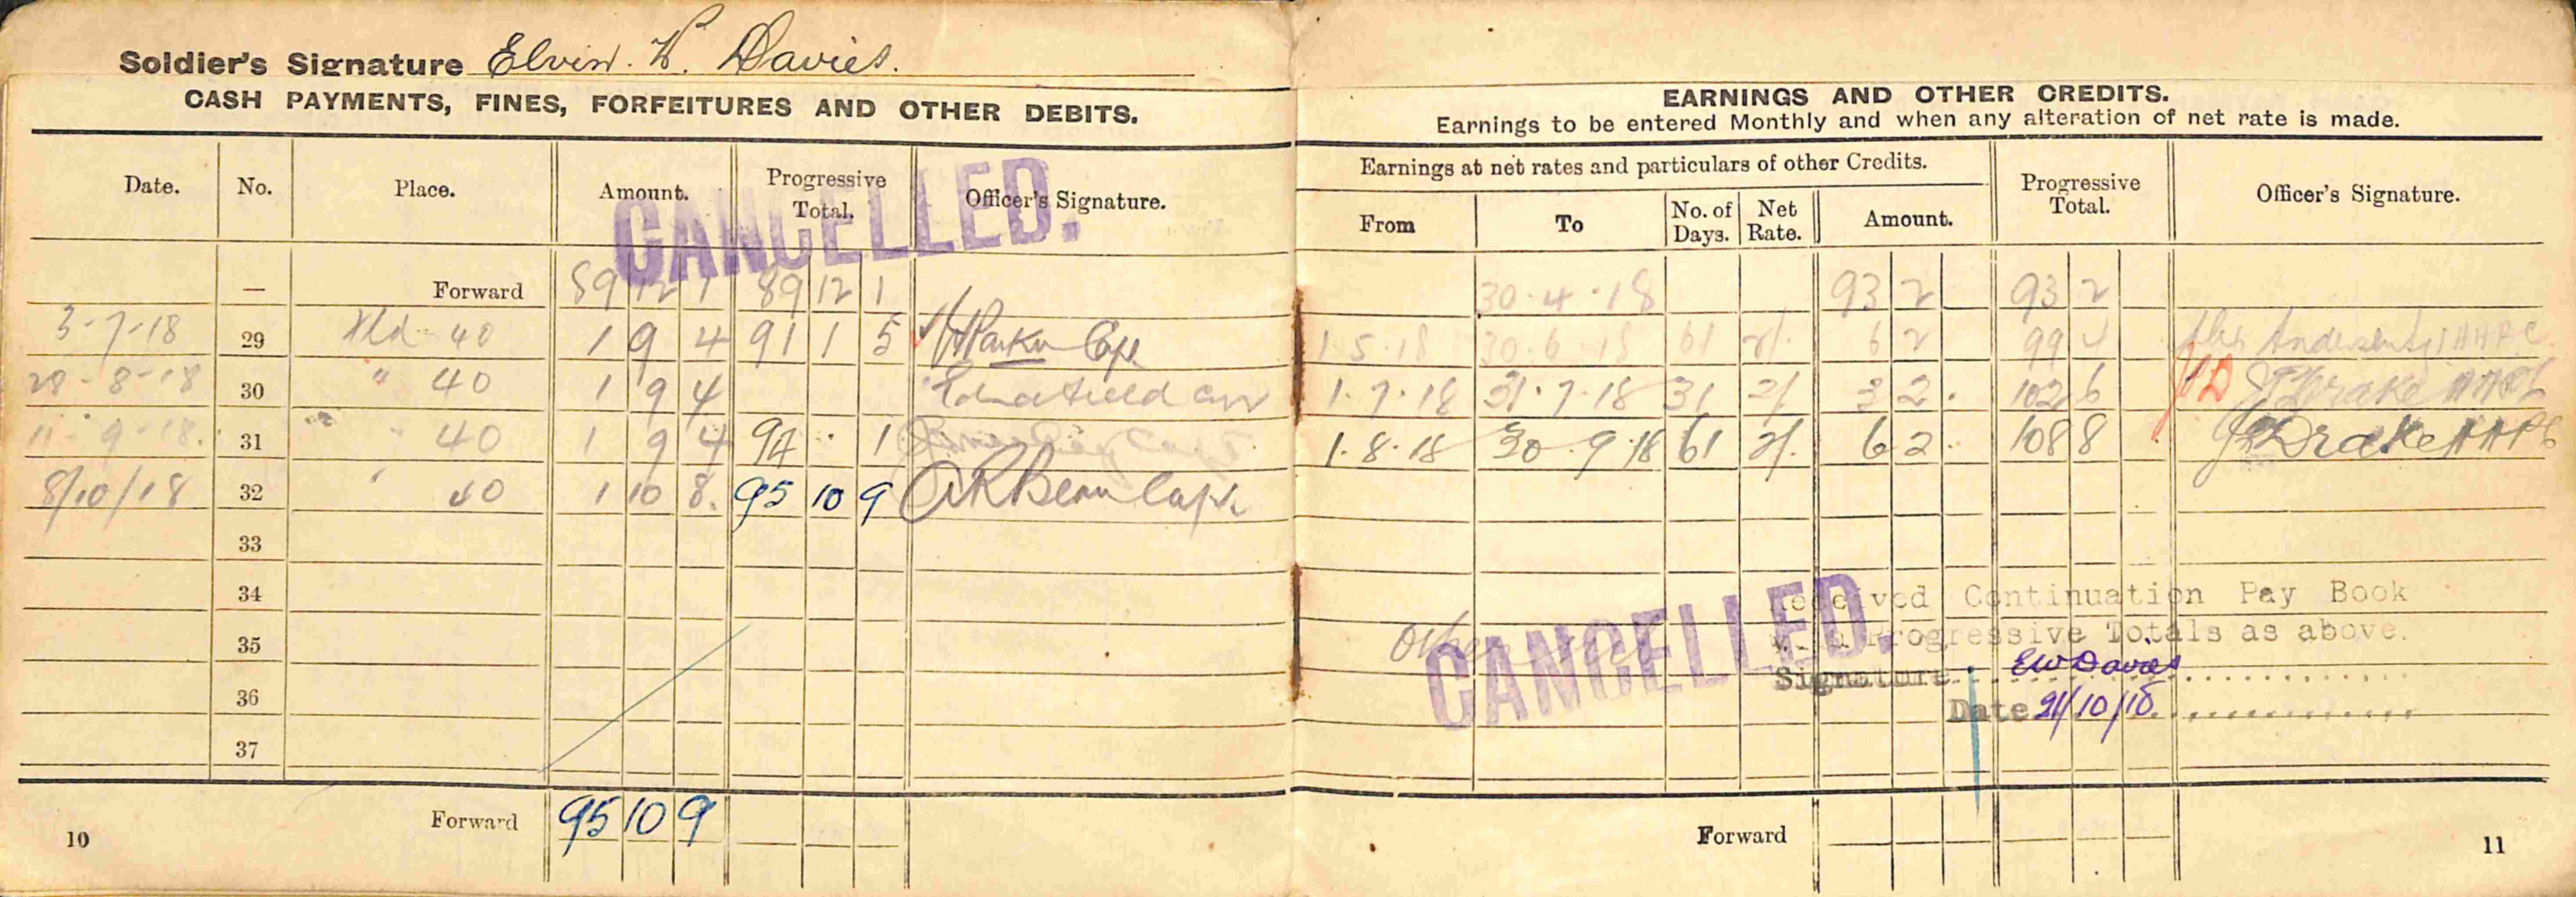 Soldier's Signature Elvin. W. Davies.
CASH PAYMENTS, FINES, FORFEITURES AND OTHER DEBITS.
Date. No. Place. Amount. Progressive Total. Officer's Signature.
CANCELLED.
— Forward 89 12 1 89 12 1
3-7-18 29 Fld 40 1 9 4 91 1 5 Parker Capt.
28-8-18 30 " 40 1 9 4
11-9-18. 31 " 40 1 9 4 94 . 1
8/10/18 32 " 40 1 10 8. 95 10 9 ARBean Capt.
33
34
35
36
37
Forward 95 10 9
10
EARNINGS AND OTHER CREDITS.
Earnings to be entered Monthly and when any alteration of net rate is made.
Earnings at net rates and particulars of other Credits. Progressive Total. Officer's Signature.
From To No. of Days. Net Rate. Amount.
30.4.18 93 2 93 2
1.5.18 30.6.18 61 2/. 6 2 99 4
1.7.18 31.7.18 31 2/ 3 2 . 102 6 JD Drake
1.8.18 30.9.18 61 2/. 6 2 . 108 8 Drake AAPC
Received Continuation Pay Book
Progressive Totals as above.
CANCELLED.
Signature EW Davies
Date 21/10/18
Forward
11